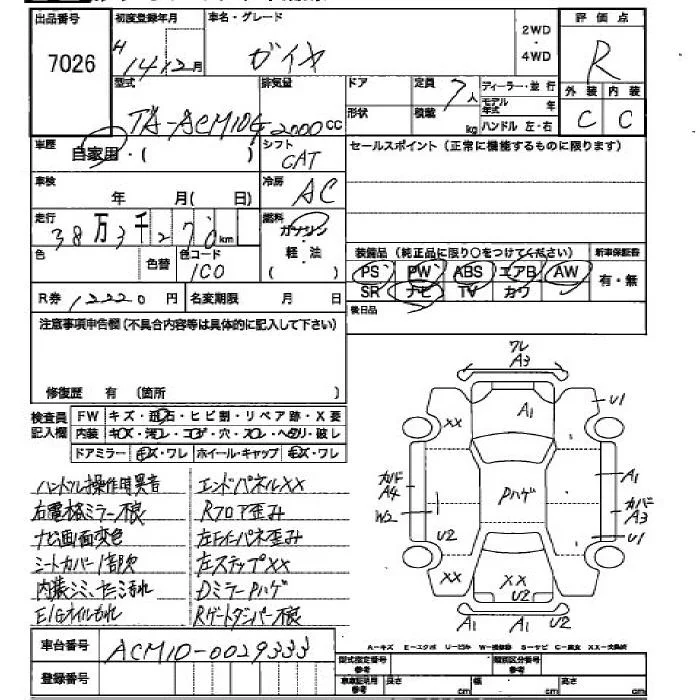 出品番号 初度登録年月 車名・グレード 2WD・4WD 評価点
7026 H14年12月 ガイヤ R
型式 排気量 ドア 定員 7人 ディーラー・並行 外装 内装
TA-ACM10G 2000cc 形状 積載 kg モデル年式 年 ハンドル 左・右 C C
車歴 自家用・( ) シフト CAT セールスポイント(正常に機能するものに限ります)
車検 年 月( 日) 冷房 AC
走行 38万3千270km 燃料 ガソリン
色 色替 色コード 1C0 軽・法 ( ) 装備品(純正品に限り○をつけてください) 新車保証書
PS PW ABS エアB AW 有・無
R券 12220円 名変期限 月 日 SR ナビ TV カワ
注意事項申告欄(不具合内容等は具体的に記入して下さい) 後日品
修復歴 有 (箇所 )
検査員記入欄 FW キズ・飛石・ヒビ割・リペア跡・X要
内装 キズ・汚レ・コゲ・穴・スレ・ヘタリ・破レ
ドアミラー キズ・ワレ ホイール・キャップ キズ・ワレ
ハンドル操作時異音 エンドパネルXX
右電格ミラー不良 Rフロア歪み
ナビ画面変色 左Fインパネ歪み
シートカバー1部欠 左ステップXX
内装シミ、ヤニ汚れ DミラーPハゲ
E/Gオイルもれ Rゲートダンパー不良
ワレ
A3
XX A1 U1
カバー A4 Pハゲ A1
W2 カバー A3
U2 U1
XX XX U2
A1 A1 U2
車台番号 ACM10-0029333
A-キズ E-エクボ U-凹み W-補修等 S-サビ C-腐食 XX-交換済
登録番号 型式指定番号 参考 類別区分番号 参考
車庫証明用 参考 長さ cm 幅 cm 高さ cm